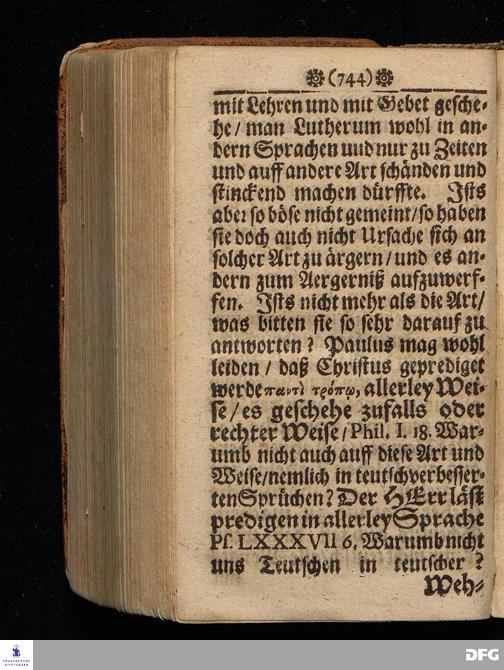 (744)
mit Lehren und mit Gebet gesche-
he/ man Lutherum wohl in an-
dern Sprachen uud nur zu Zeiten
und auff andere Art schänden und
stinckend machen dürffte. Ists
aber so böse nicht gemeint/ so haben
sie doch auch nicht Ursache sich an
solcher Art zu ärgern/ und es an-
dern zum Aergerniß aufzuwerf-
fen. Ists nicht mehr als die Art/
was bitten sie so sehr darauf zu
antworten? Paulus mag wohl
leiden / daß Christus geprediget
werde παντὶ τρόπῳ, allerley Wei-
se/ es geschehe zufalls oder
rechter Weise/ Phil. I. 18. War-
umb nicht auch auff diese Art und
Weise/ nemlich in teutschverbesser-
ten Sprüchen? Der HErr läst
predigen in allerley Sprache
Ps. LXXXVII 6. Warumb nicht
uns Teutschen in teutscher?
Weh-
FRANCKESCHE
STIFTUNGEN
DFG